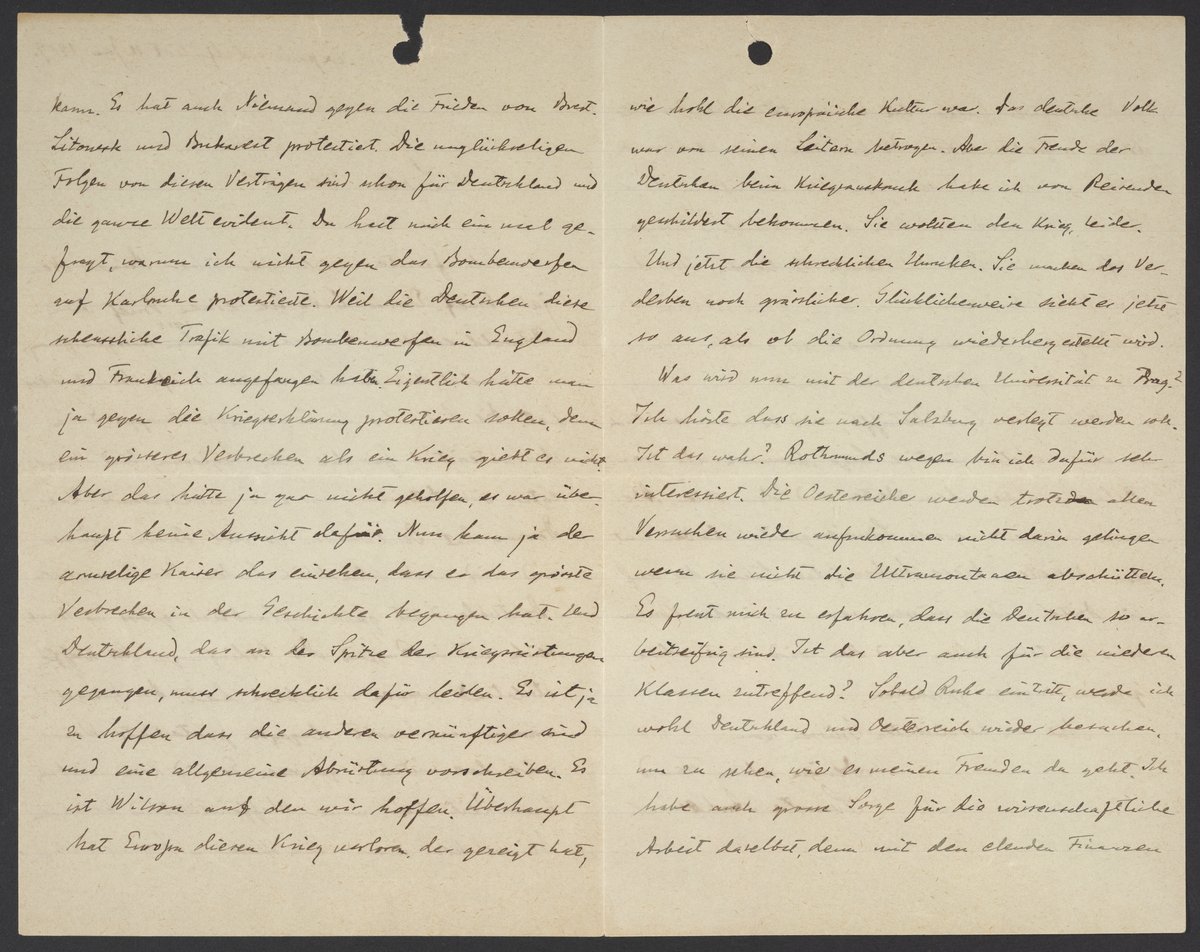 kann. Es hat auch Niemand gegen die Frieden von Brest-
Litowsk und Bukarest protestiert. Die unglückseligen
Folgen von diesen Verträgen sind schon für Deutschland und
die ganze Welt evident. Du hast mich einmal ge-
fragt, warum ich nicht gegen das Bombenwerfen
auf Karlsruhe protestierte. Weil die Deutschen diese
scheussliche Trafik mit Bombenwerfen in England
und Frankreich angefangen haben. Eigentlich hätte man
ja gegen die Kriegserklärung protestieren sollen, denn
ein grösseres Verbrechen als ein Krieg giebt es nicht.
Aber das hätte ja gar nicht geholfen, es war über-
haupt keine Aussicht dafür. Nun kann ja der
armselige Kaiser das einsehen, dass er das grösste
Verbrechen in der Geschichte begangen hat. Und
Deutschland, das an der Spitze der Kriegsrüstungen
gegangen, muss schrecklich dafür leiden. Es ist ja
zu hoffen dass die anderen vernünftiger sind
und eine allgemeine Abrüstung vorschreiben. Es
ist Wilson auf den wir hoffen. Überhaupt
hat Europa diesen Krieg verloren, der gezeigt hat,
wie hohl die europäische Kultur war. Das deutsche Volk
war von seinen Leitern betrogen. Aber die Freude der
Deutschen beim Kriegsausbruch habe ich von Reisenden
geschildert bekommen. Sie wollten den Krieg, leider.
Und jetzt die schrecklichen Unruhen. Sie machen das Ver-
derben noch grässlicher. Glücklicherweise sieht es jetzt
so aus, als ob die Ordnung wiederhergestellt wird.
Was wird nun mit der deutschen Universität zu Prag?
Ich hörte dass sie nach Salzburg verlegt werden soll.
Ist das wahr? Rothmunds wegen bin ich dafür sehr
interessiert. Die Oesterreicher werden trotz allen
Versuchen wieder aufzukommen nicht darin gelingen
wenn sie nicht die Ultramontanen abschütteln.
Es freut mich zu erfahren, dass die Deutschen so ar-
beitseifrig sind. Ist das aber auch für die niederen
Klassen zutreffend? Sobald Ruhe eintritt, werde ich
wohl Deutschland und Oesterreich wieder besuchen,
um zu sehen, wie es meinen Freunden da geht. Ich
habe auch grosse Sorge für die wissenschaftliche
Arbeit daselbst, denn mit den elenden Finanzen